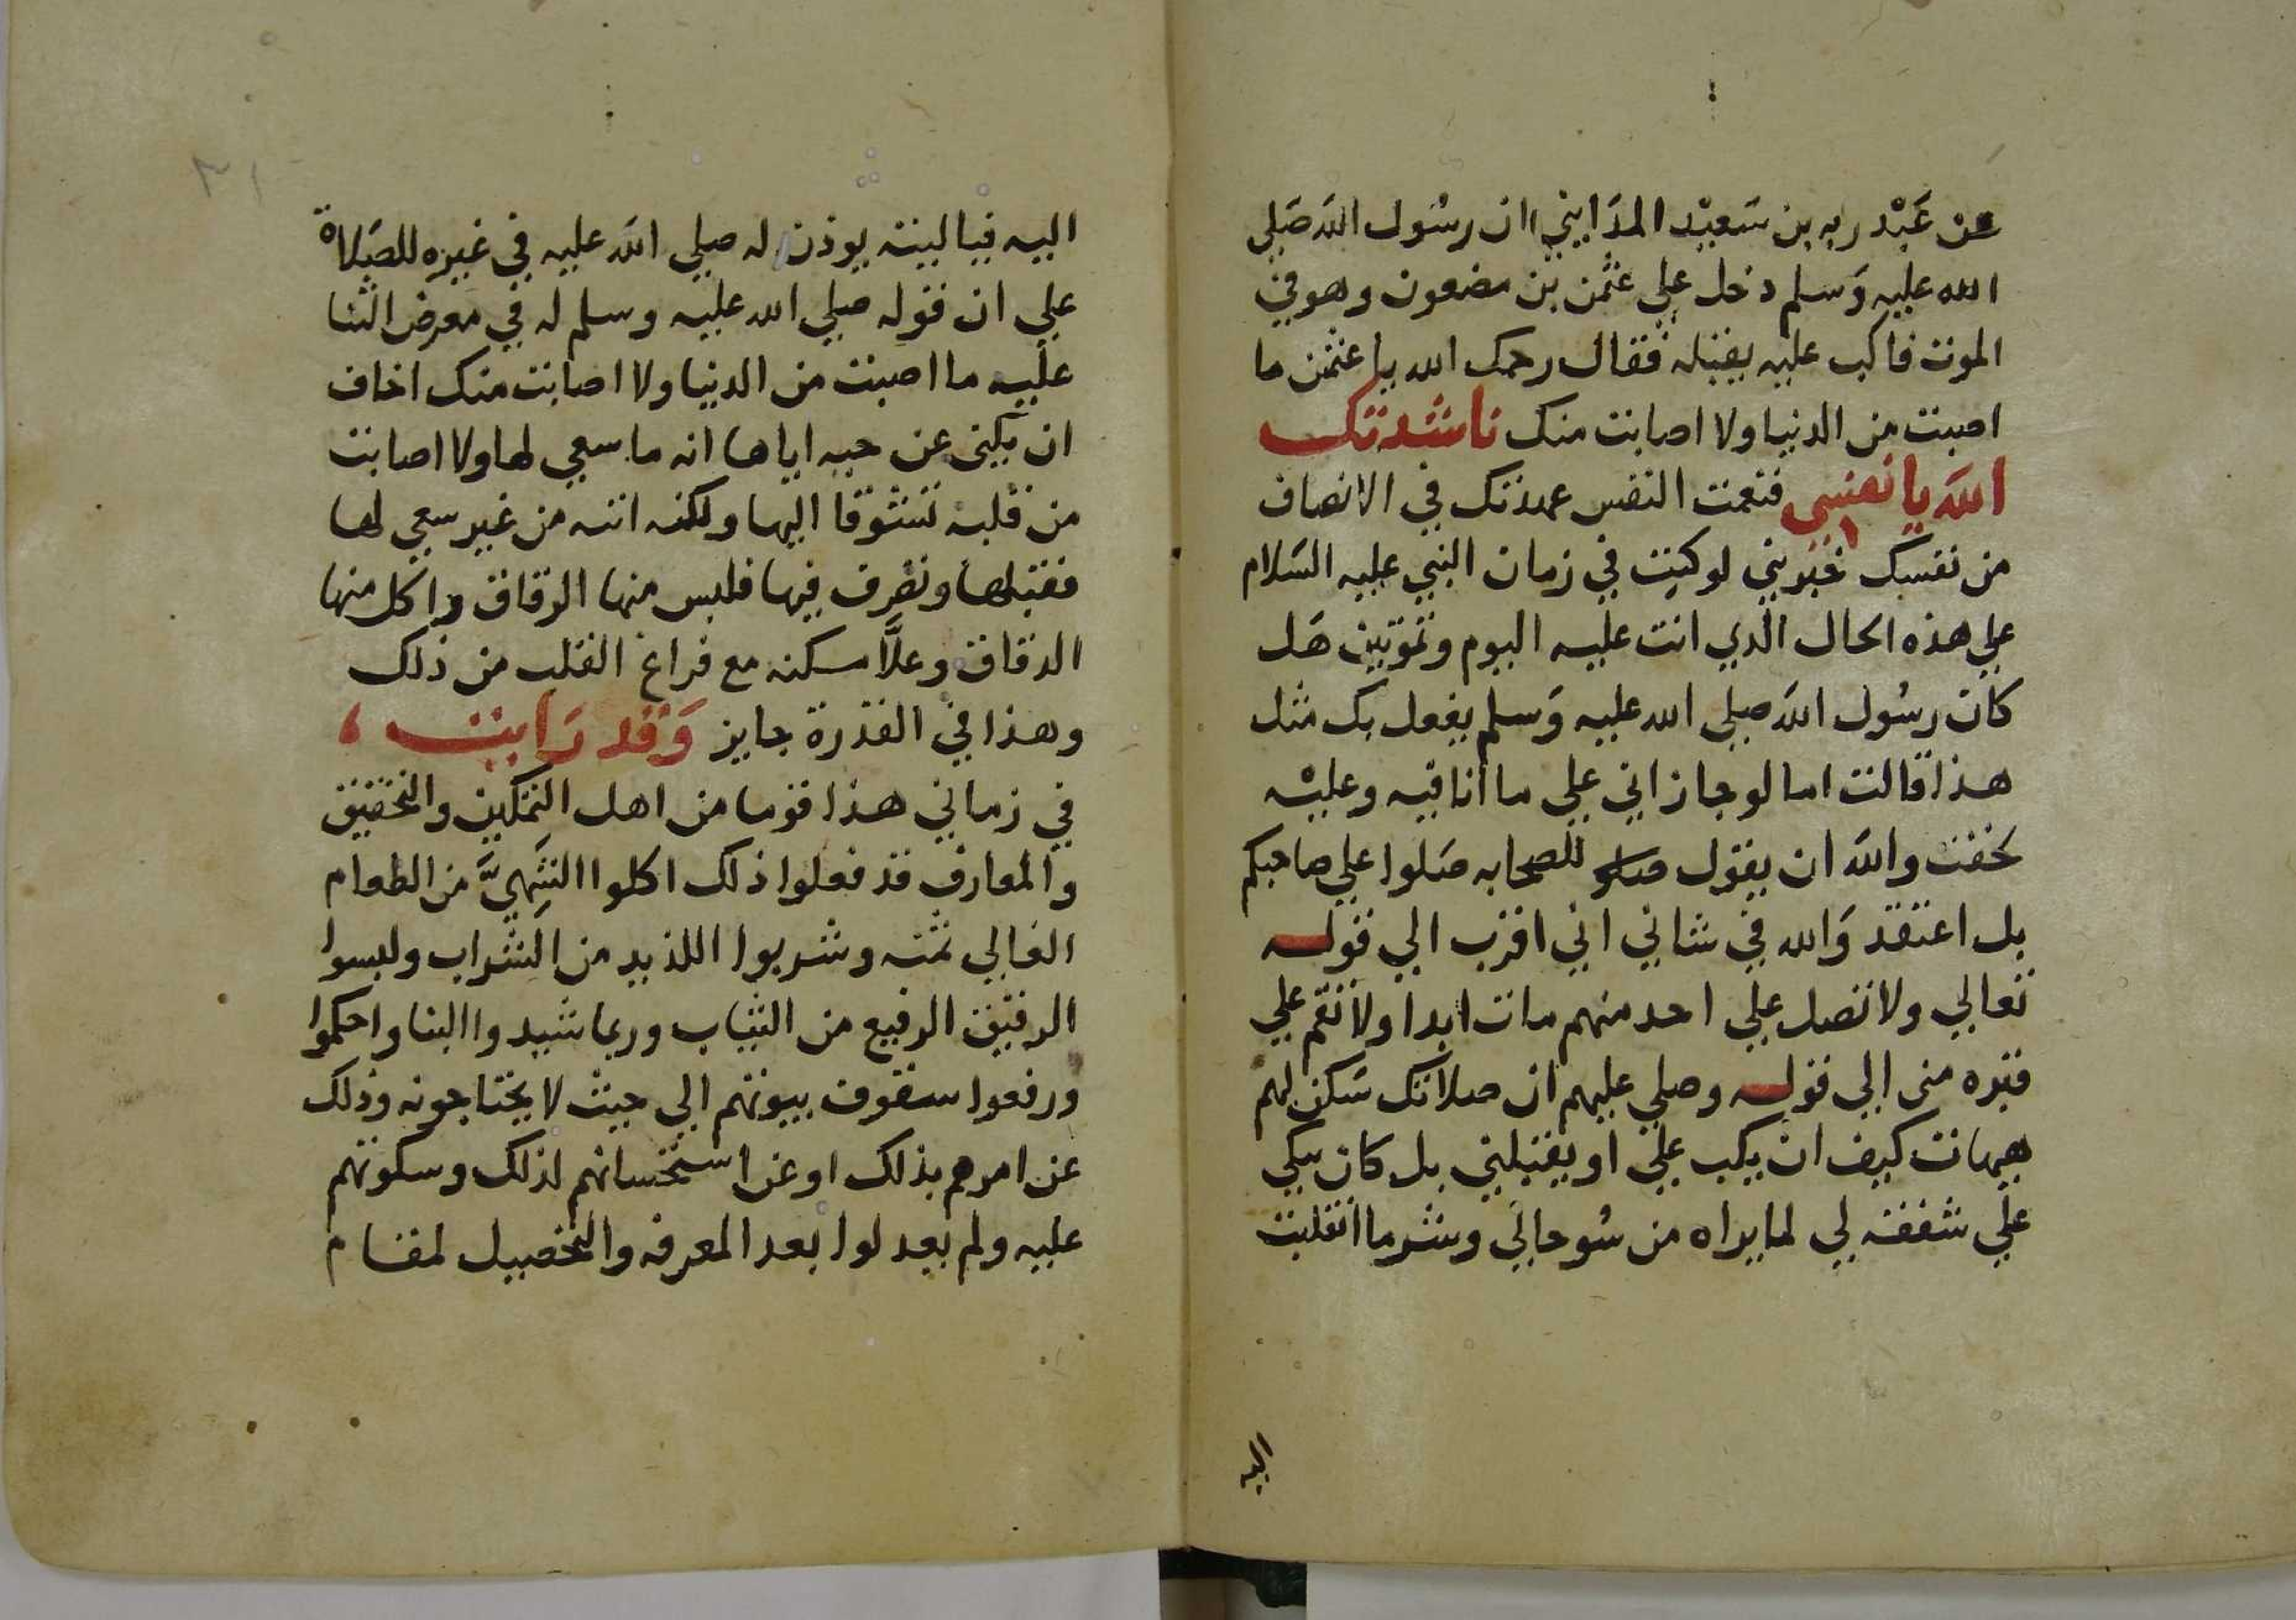 عن عَبْد ربه بن سَعيْد المدَايني ان رسُول الله صَلي
الله عليه وَسلم دخل علي عثمن بن مضعون وهو في
الموت فاكب عليه يقبله فقال رحمك الله يا عثمن ما
اصبت من الدنيا ولا اصابت منك ناشدتك
الله يا نفسي فنعمت النفس عهدتك في الانصاف
من نفسك خبريني لو كنت في زمان النبي عليه السَلام
علي هذه الحال الذي انت عليه اليوم وتموتين هَل
كان رسُول الله صلي الله عليه وَسلم يفعل بك مثل
هذا قالت اما لو جازاني علي ما أنا فيه وعليْه
لخفت والله ان يقول للصحابه صَلوا علي صاحبكم
بل اعتقد وَالله في شاني اني اقرب الي قوله
تعالي ولا تصل علي احد منهم مات ابدا ولا تقم علي
قبره مني الي قوله وصلي عليهم ان صلاتك سَكن لهم
هيهات كيف ان يكب علي او يقبلني بل كان يبكي
علي شفقه لي لما يراه من سُو حالي وشر ما انقلبت
اليه
٣١
اليه فياليته يوذن له صلي الله عليه في غيره للصَلاة
علي ان قوله صلي الله عليه وسلم له في معرض الثنا
عليه ما اصبت من الدنيا ولا اصابت منك اخاف
ان يكني عن حبه اياها انه ما سعي لها ولا اصابت
من قلبه تشوقا اليها ولكنه اتته من غير سعي لها
فقبلها وتصرف فيها فلبس منها الرقاق واكل منها
الدقاق وعلَّا مسكنه مع فراغ القلب من ذلك
وهذا في القدرة جايز وَقد رَايت ،
في زماني هذا قوما من اهل التمكين والتحقيق
والمعارف قد فعلوا ذلك اكلوا الشَهيَّ من الطعام
الغالي ثمنه وشربوا اللذيد من الشراب ولبسوا
الرقيق الرفيع من الثياب وربما شيدوا البنا واحكموا
ورفعوا سقوف بيوتهم الي حيث لا يحتاجونه وذلك
عن امرهم بذلك او عن استحسانهم لذلك وسكوتهم
عليه ولم يعدلوا بعد المعرفه والتحصيل لمقام